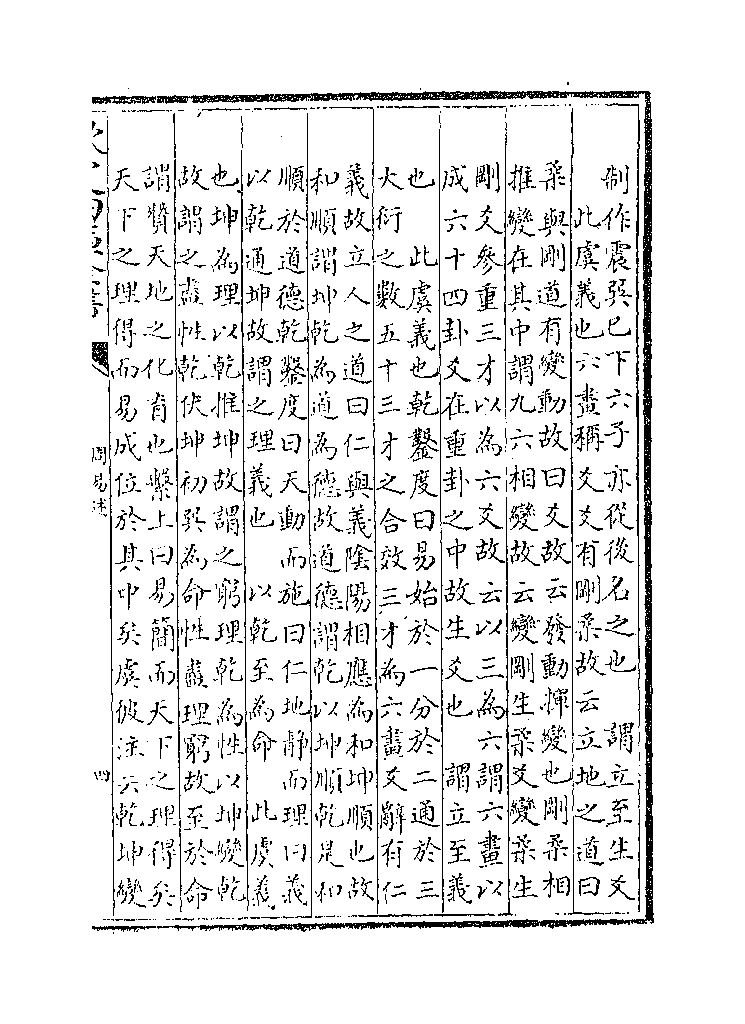 制作震巽已下六子亦從後名之也　謂立至生爻
此虞義也六畫稱爻爻有剛柔故云立地之道曰
柔與剛道有變動故曰爻故云發動揮變也剛柔相
推變在其中謂九六相變故云變剛生柔爻變柔生
剛爻參重三才以為六爻故云以三為六謂六畫以
成六十四卦爻在重卦之中故生爻也　謂立至義
也　此虞義也乾鑿度曰易始於一分於二通於三
大衍之數五十三才之合效三才為六畫爻辭有仁
義故立人之道曰仁與義陰陽相應為和坤順也故
和順謂坤乾為道為德故道德謂乾以坤順乾是和
順於道德乾鑿度曰天動而施曰仁地静而理曰義
以乾通坤故謂之理義也　以乾至為命　此虞義
也坤為理以乾推坤故謂之窮理乾為性以坤變乾
故謂之盡性乾伏坤初巽為命性盡理窮故至於命
謂贊天地之化育也繫上曰易簡而天下之理得矣
天下之理得而易成位於其中矣虞彼注云乾坤變
周易述
四